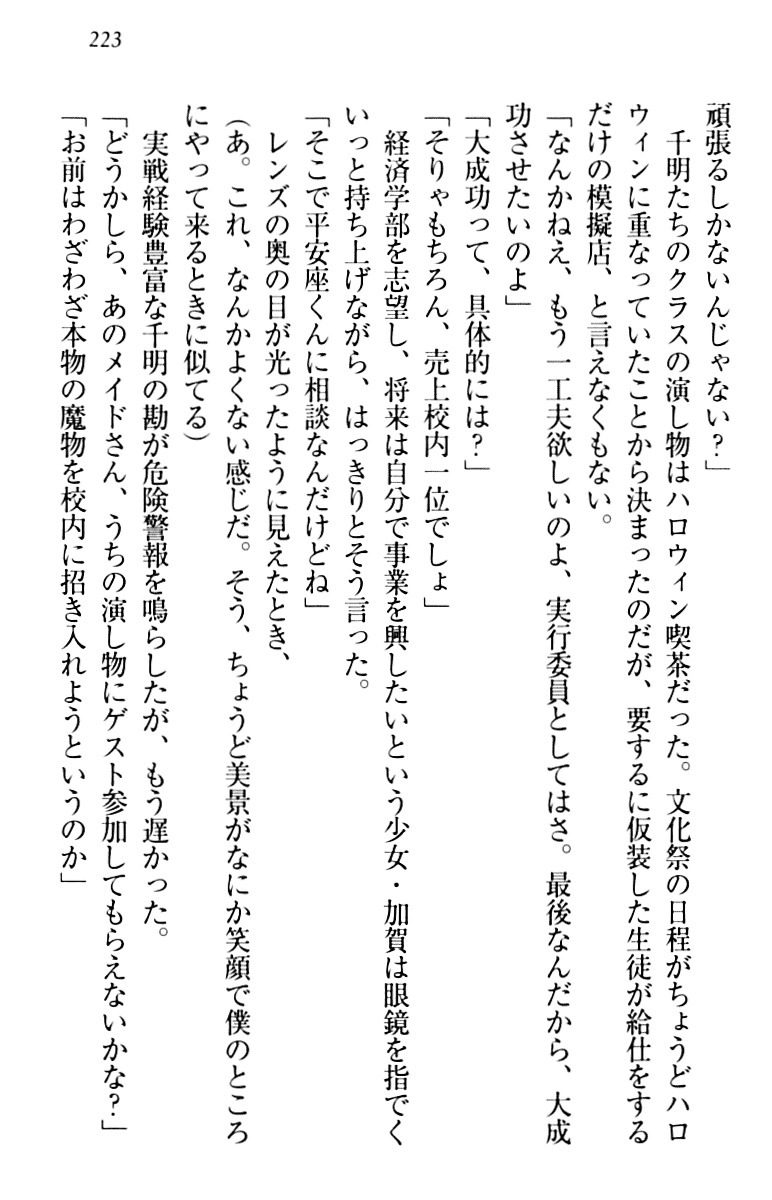 223
頑張るしかないんじゃない？」
千明たちのクラスの演し物はハロウィン喫茶だった。文化祭の日程がちょうどハロ
ウィンに重なっていたことから決まったのだが、要するに仮装した生徒が給仕をする
だけの模擬店、と言えなくもない。
「なんかねえ、もう一工夫欲しいのよ、実行委員としてはさ。最後なんだから、大成
功させたいのよ」
「大成功って、具体的には？」
「そりゃもちろん、売上校内一位でしょ」
経済学部を志望し、将来は自分で事業を興したいという少女・加賀は眼鏡を指でく
いっと持ち上げながら、はっきりとそう言った。
「そこで平安座くんに相談なんだけどね」
レンズの奥の目が光ったように見えたとき、
（あ。これ、なんかよくない感じだ。そう、ちょうど美景がなにか笑顔で僕のところ
にやって来るときに似てる）
実戦経験豊富な千明の勘が危険警報を鳴らしたが、もう遅かった。
「どうかしら、あのメイドさん、うちの演し物にゲスト参加してもらえないかな？」
「お前はわざわざ本物の魔物を校内に招き入れようというのか」